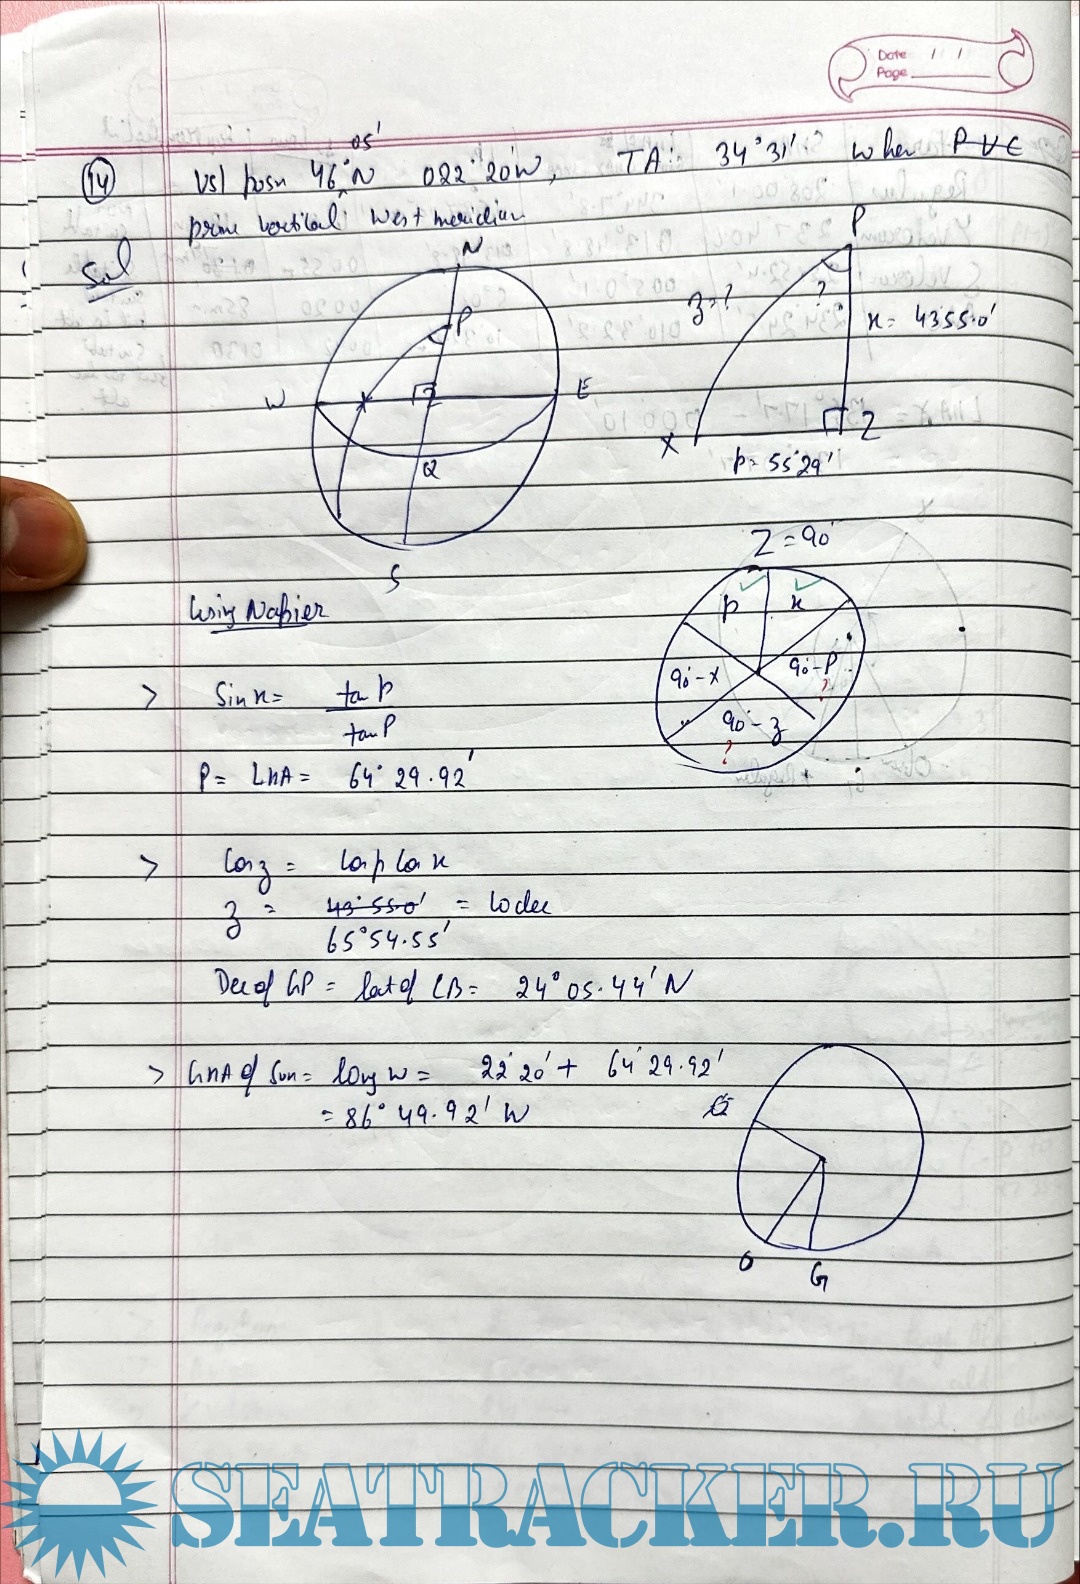 Date / /
Page
05'
14 Vsl posn 46°N 022°20'W, TA: 34°31' when PVE
prime vertical West meridian
Sol
N
P
W
E
Z
Q
S
P
z=?
?
x = 43°55.0'
X
Z
p = 55°29'
Z = 90°
p
x
90-x
90-P
?
90-z
?
Using Napier
> Sin x = tan p
tan P
P = LHA = 64° 29.92'
> Cos z = Cos p Cos x
z = 43°55.0' = Co dec
65°54.55'
Dec of GP = lat of CB = 24° 05.44' N
> GHA of Sun = long W = 22°20' + 64°29.92'
= 86° 49.92' W
O
G
SEATRACKER.RU